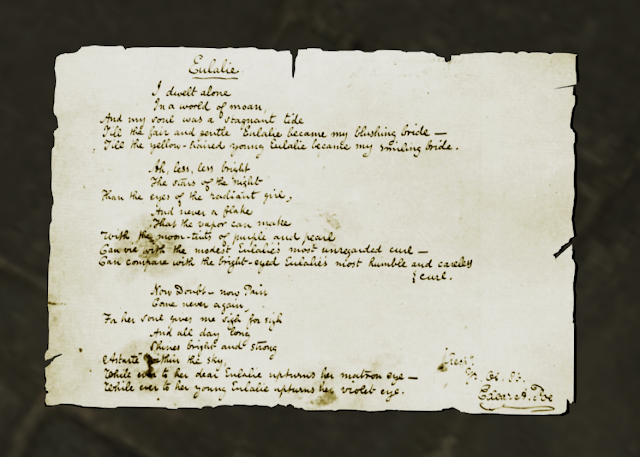 Eulalie.
I dwelt alone
In a world of moan,
And my soul was a stagnant tide
Till the fair and gentle Eulalie became my blushing bride —
Till the yellow-haired young Eulalie became my smiling bride.
Ah, less, less bright
The stars of the night
Than the eyes of the radiant girl,
And never a flake
That the vapor can make
With the moon-tints of purple and pearl
Can vie with the modest Eulalie's most unregarded curl —
Can compare with the bright-eyed Eulalie's most humble and careless
curl.
Now Doubt – now Pain
Come never again,
For her soul gives me sigh for sigh
And all day long
Shines bright and strong
Astarté within the sky,
While ever to her dear Eulalie upturns her matron eye —
While ever to her young Eulalie upturns her violet eye.
Edgar A. Poe